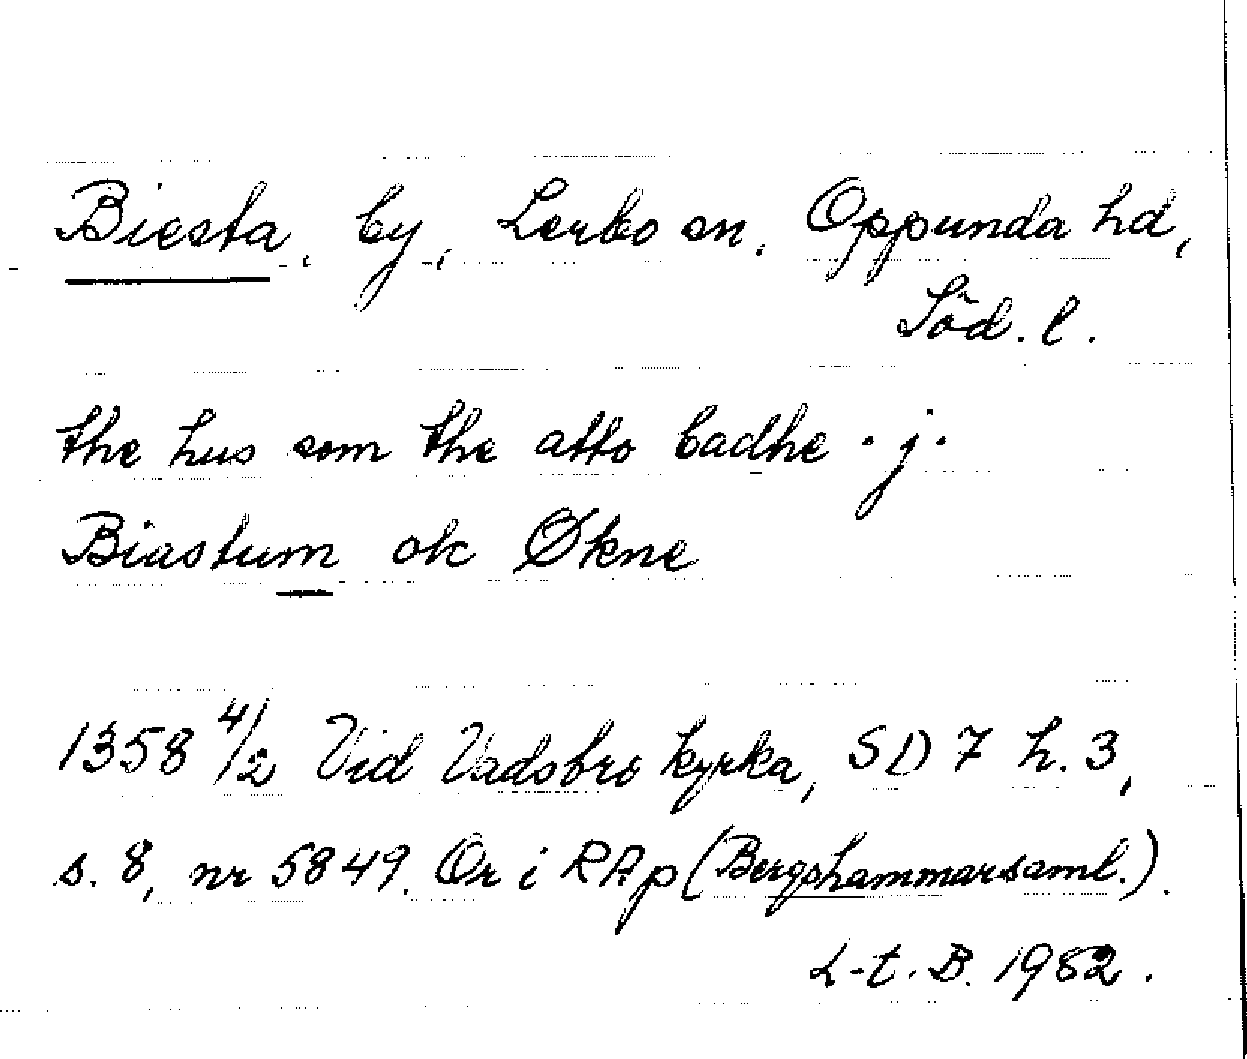 Biesta, by, Lerbo sn, Oppunda hd,
Söd. l.
the hus som the atto badhe · j ·
Biastum ok Økne
1358 4/2 Vid Vadsbro kyrka, SD 7 h. 3,
s. 8, nr 5849. Or i RAp (Bergshammarsaml.).
L-t. B. 1982.